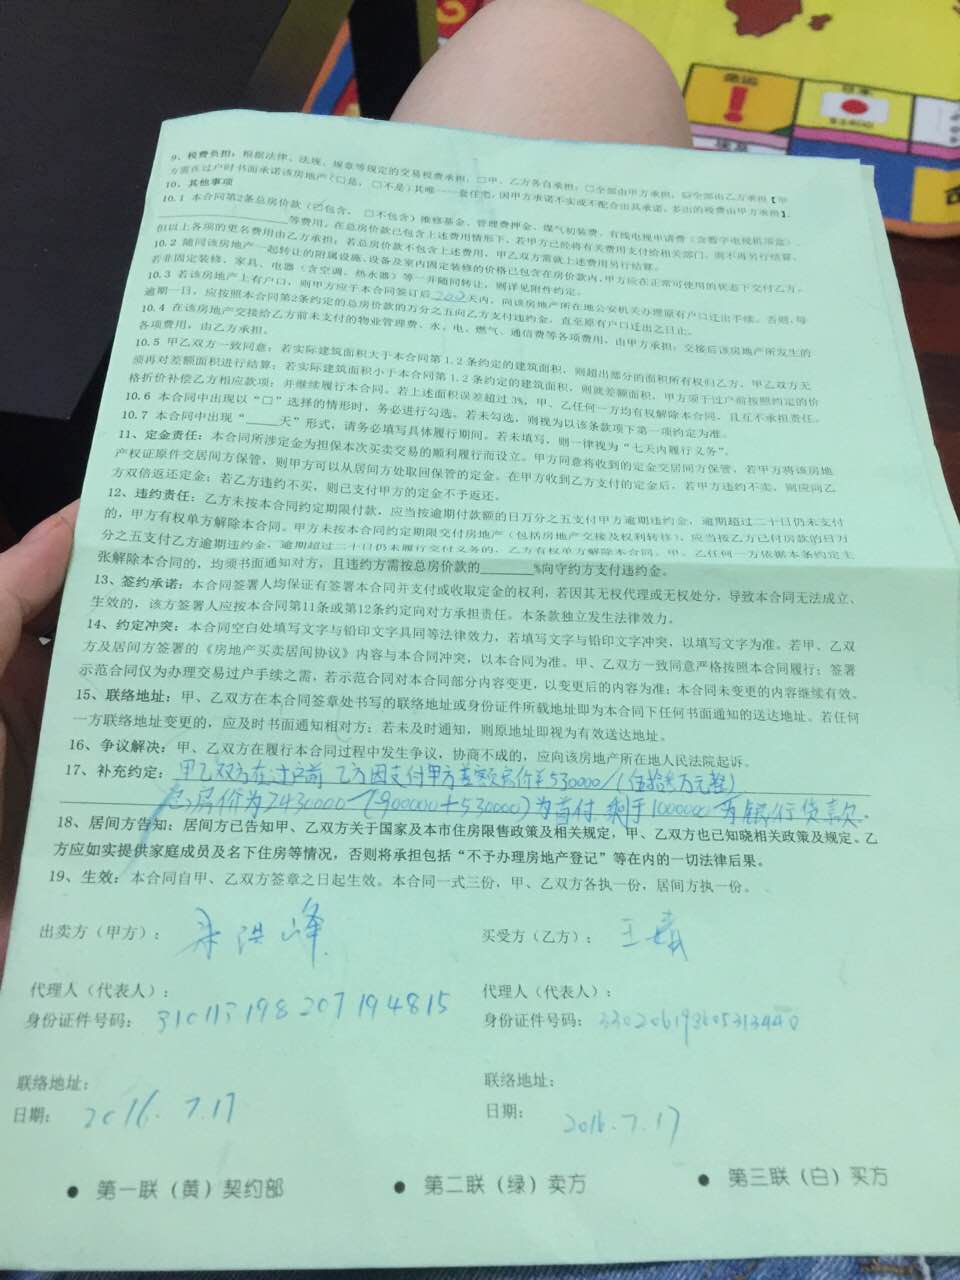 命运
日本
$2400
9、税费负担：根据法律、法规、规章等规定的交易税费承担，□甲、乙方各自承担；□全部由甲方承担；☑全部由乙方承担【甲
方需在过户时书面承诺该房地产（□是，□不是）其唯一一套住宅，因甲方承诺不实或不配合出具承诺，多出的税费由甲方承担】.
10、其他事项
10.1 本合同第2条总房价款（☑包含， □不包含）维修基金、管理费押金、煤气初装费、有线电视申请费（含数字电视机顶盒）、
等费用，在总房价款已包含上述费用情形下，若甲方已经将有关费用支付给相关部门，则不再另行结算，
但以上各项的更名费用由乙方承担；若总房价款不包含上述费用，甲乙双方需就上述费用另行结算。
10.2 随同该房地产一起转让的附属设施、设备及室内固定装修的价格已包含在房价款内，甲方应在正常可使用的状态下交付乙方。
若非固定装修、家具、电器（含空调、热水器）等一并随同转让，则详见附件约定。
10.3 若该房地产上有户口，则甲方应于本合同签订后 天内，向该房地产所在地公安机关办理原有户口迁出手续。否则，每
逾期一日，应按照本合同第2条约定的总房价款的万分之五向乙方支付违约金，直至原有户口迁出之日止。
10.4 在该房地产交接给乙方前未支付的物业管理费、水、电、燃气、通信费等各项费用，由甲方承担；交接后该房地产所发生的
各项费用，由乙方承担。
10.5 甲乙双方一致同意：若实际建筑面积大于本合同第1.2条约定的建筑面积，则超出部分的面积所有权归乙方，甲乙双方无
须再对差额面积进行结算；若实际建筑面积小于本合同第1.2条约定的建筑面积，则就差额面积，甲方须于过户前按照约定的价
格折价补偿乙方相应款项；并继续履行本合同。若上述面积误差超过3%，甲、乙任何一方均有权解除本合同，且互不承担责任。
10.6 本合同中出现以“□”选择的情形时，务必进行勾选。若未勾选，则视为以该条款项下第一项约定为准。
10.7 本合同中出现“____天”形式，请务必填写具体履行期间。若未填写，则一律视为“七天内履行义务”。
11、定金责任：本合同所涉定金为担保本次买卖交易的顺利履行而设立。甲方同意将收到的定金交居间方保管，若甲方将该房地
产权证原件交居间方保管，则甲方可以从居间方处取回保管的定金。在甲方收到乙方支付的定金后，若甲方违约不卖，则应向乙
方双倍返还定金；若乙方违约不买，则已支付甲方的定金不予返还。
12、违约责任：乙方未按本合同约定期限付款，应当按逾期付款额的日万分之五支付甲方逾期违约金，逾期超过二十日仍未支付
的，甲方有权单方解除本合同。甲方未按本合同约定期限交付房地产（包括房地产交接及权利转移），应当按乙方已付房款的日万
分之五支付乙方逾期违约金，逾期超过二十日仍未履行交付义务的，乙方有权单方解除本合同。甲、乙任何一方依据本条约定主
张解除本合同的，均须书面通知对方，且违约方需按总房价款的______%向守约方支付违约金。
13、签约承诺：本合同签署人均保证有签署本合同并支付或收取定金的权利，若因其无权代理或无权处分，导致本合同无法成立、
生效的，该方签署人应按本合同第11条或第12条约定向对方承担责任。本条款独立发生法律效力。
14、约定冲突：本合同空白处填写文字与铅印文字具同等法律效力，若填写文字与铅印文字冲突，以填写文字为准。若甲、乙双
方及居间方签署的《房地产买卖居间协议》内容与本合同冲突，以本合同为准。甲、乙双方一致同意严格按照本合同履行；签署
示范合同仅为办理交易过户手续之需，若示范合同对本合同部分内容变更，以变更后的内容为准；本合同未变更的内容继续有效。
15、联络地址：甲、乙双方在本合同签章处书写的联络地址或身份证件所载地址即为本合同下任何书面通知的送达地址。若任何
一方联络地址变更的，应及时书面通知相对方；若未及时通知，则原地址即视为有效送达地址。
16、争议解决：甲、乙双方在履行本合同过程中发生争议，协商不成的，应向该房地产所在地人民法院起诉。
17、补充约定：甲乙双方在过户前 乙方因支付甲方差额房价￥530000/（伍拾叁万元整）
总房价为2430000－（900000+530000）为首付 剩于1000000为银行贷款
18、居间方告知：居间方已告知甲、乙双方关于国家及本市住房限售政策及相关规定，甲、乙双方也已知晓相关政策及规定。乙
方应如实提供家庭成员及名下住房等情况，否则将承担包括“不予办理房地产登记”等在内的一切法律后果。
19、生效：本合同自甲、乙双方签章之日起生效。本合同一式三份，甲、乙双方各执一份，居间方执一份。
出卖方（甲方）： 洪峰
买受方（乙方）： 王
代理人（代表人）：
代理人（代表人）：
身份证件号码：
身份证件号码：
联络地址：
联络地址：
日期： 2016.7.17
日期： 2016.7.17
● 第一联（黄）契约部 ● 第二联（绿）卖方 ● 第三联（白）买方